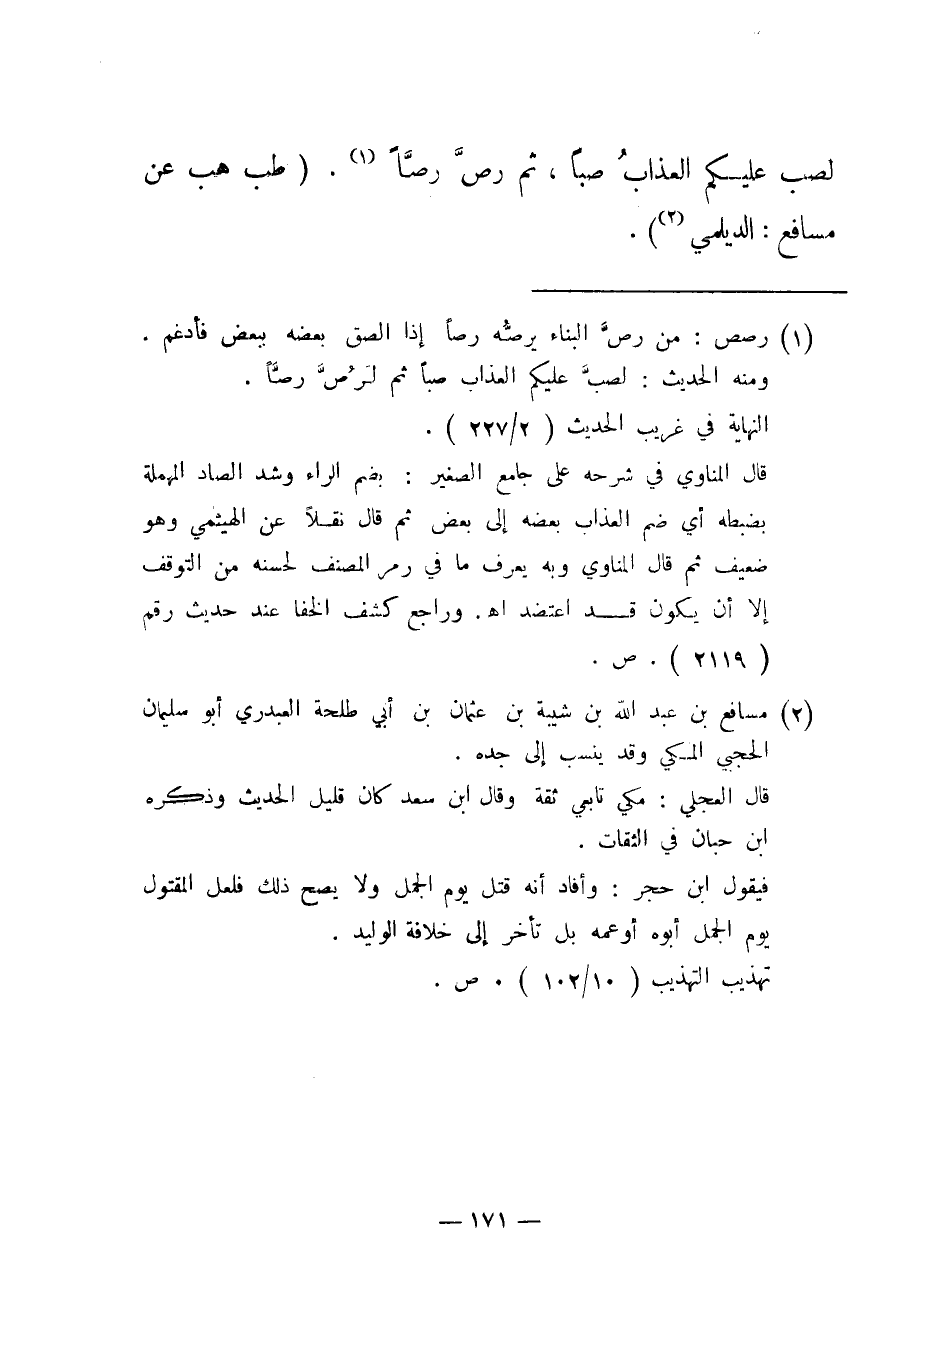 لصب عليكم العذابُ صباً ، ثم رصَّ رصَّاً (١) . ( طب هب عن
مسافع : الديلمي (٢)) .
(١) رصص : من رصَّ البناء يرصُّه رصاً إذا الصق بعضه ببعض فأدغم .
ومنه الحديث : لصبَّ عليكم العذاب صباً ثم لَرُصَّ رصَّاً .
النهاية في غريب الحديث ( ٢٢٧/٢ ) .
قال المناوي في شرحه على جامع الصغير : بضم الراء وشد الصاد المهملة
بضبطه أي ضم العذاب بعضه إلى بعض ثم قال نقلاً عن الهيثمي وهو
ضعيف ثم قال المناوي وبه يعرف ما في رمز المصنف لحسنه من التوقف
إلا أن يكون قد اعتضد اه . وراجع كشف الخفا عند حديث رقم
( ٢١١٩ ) . ص .
(٢) مسافع بن عبد الله بن شيبة بن عثمان بن أبي طلحة العبدري أبو سليمان
الحجبي المكي وقد ينسب إلى جده .
قال العجلي : مكي تابعي ثقة وقال ابن سعد كان قليل الحديث وذكره
ابن حبان في الثقات .
فيقول ابن حجر : وأفاد أنه قتل يوم الجمل ولا يصح ذلك فلعل المقتول
يوم الجمل أبوه أوعمه بل تأخر إلى خلافة الوليد .
تهذيب التهذيب ( ١٠٢/١٠ ) . ص .
— ١٧١ —